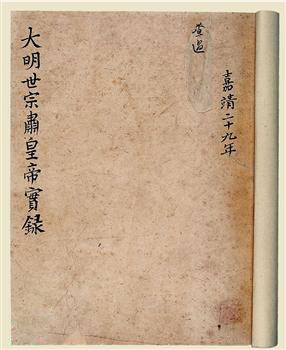 嘉靖二十九年
查過
大明世宗肅皇帝實錄